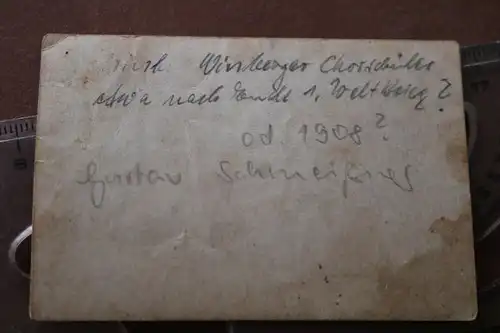 Winzberger Chorschüler
etwa nach Ende 1. Weltkrieg?
od. 1908?
Gustav Schmeißner